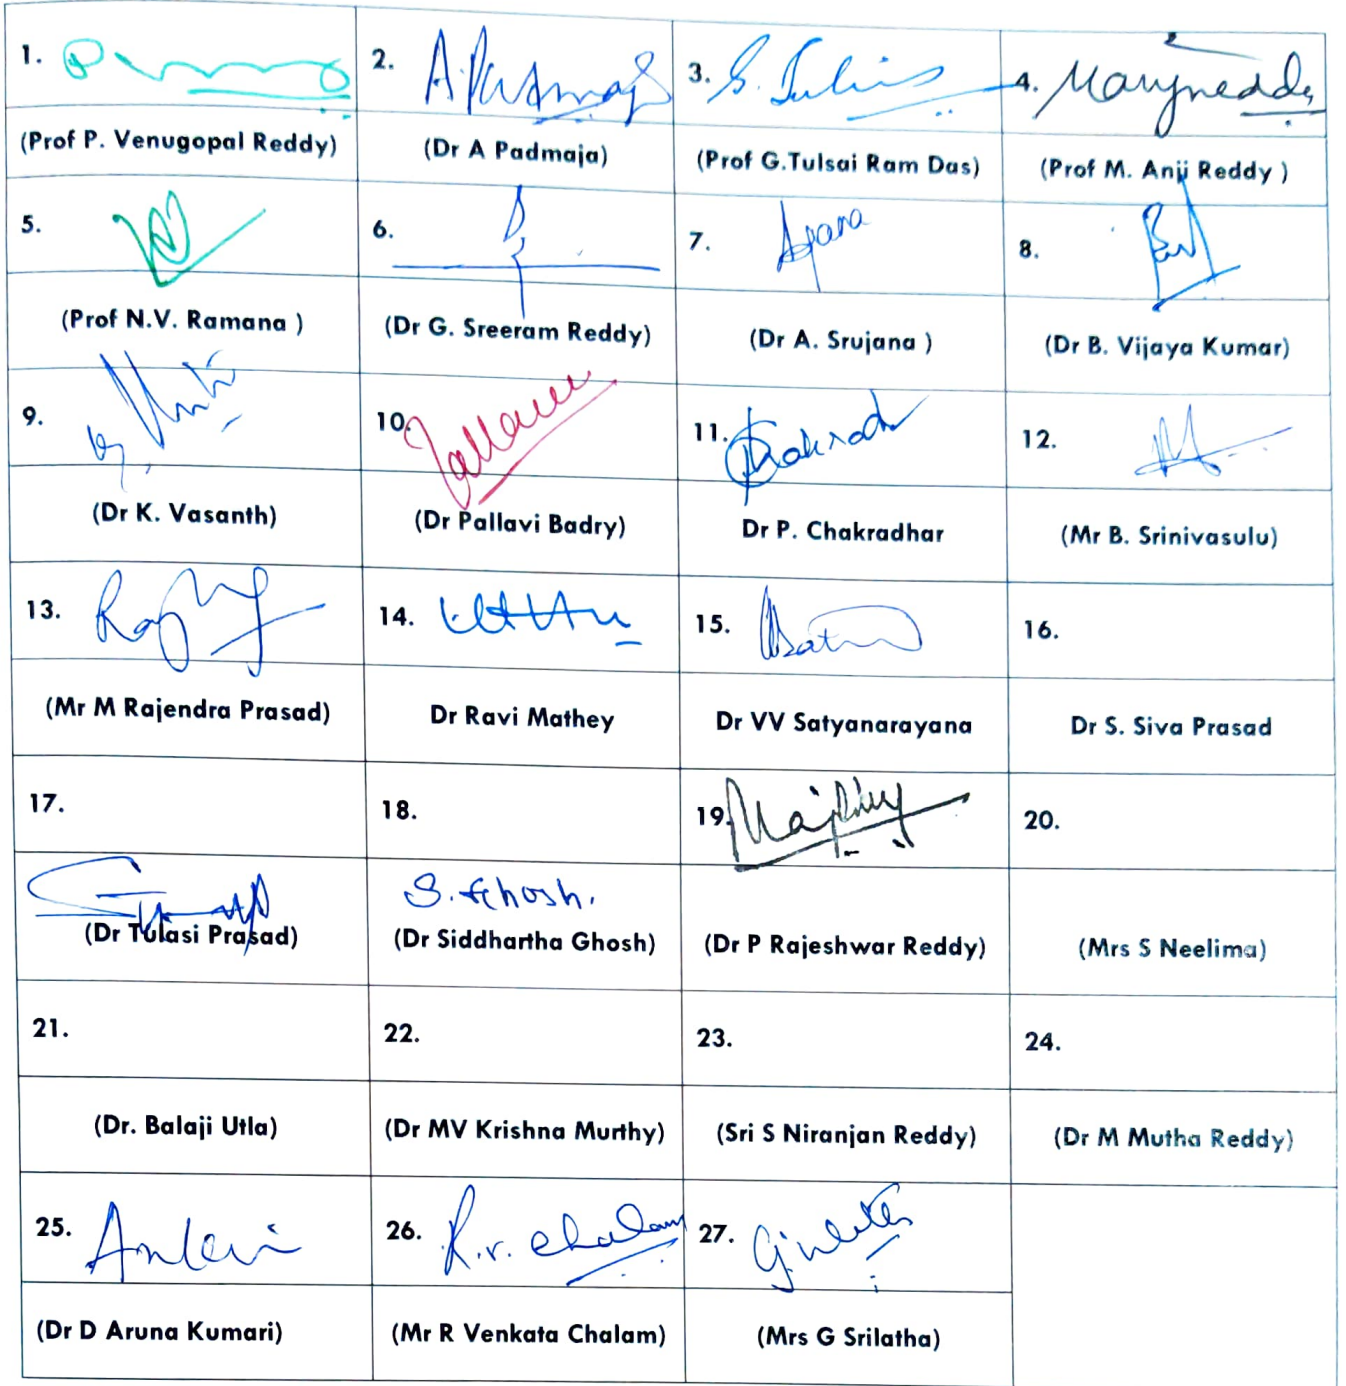 1. 2. A.Padmaja 3. 4.
(Prof P. Venugopal Reddy) (Dr A Padmaja) (Prof G.Tulsai Ram Das) (Prof M. Anji Reddy )
5. 6. 7. 8.
(Prof N.V. Ramana ) (Dr G. Sreeram Reddy) (Dr A. Srujana ) (Dr B. Vijaya Kumar)
9. 10. 11. Chakradh 12.
(Dr K. Vasanth) (Dr Pallavi Badry) Dr P. Chakradhar (Mr B. Srinivasulu)
13. 14. 15. 16.
(Mr M Rajendra Prasad) Dr Ravi Mathey Dr VV Satyanarayana Dr S. Siva Prasad
17. 18. 19. 20.
S. Ghosh.
(Dr Tulasi Prasad) (Dr Siddhartha Ghosh) (Dr P Rajeshwar Reddy) (Mrs S Neelima)
21. 22. 23. 24.
(Dr. Balaji Utla) (Dr MV Krishna Murthy) (Sri S Niranjan Reddy) (Dr M Mutha Reddy)
25. 26. R.v. Chalam 27.
(Dr D Aruna Kumari) (Mr R Venkata Chalam) (Mrs G Srilatha)